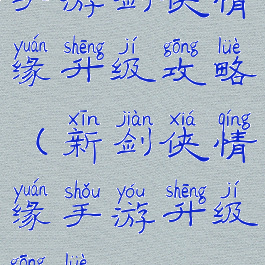 手游剑侠情
yuán shēng jí gōng lüè
缘升级攻略
xīn jiàn xiá qíng
（新剑侠情
yuán shǒu yóu shēng jí
缘手游升级
gōng lüè